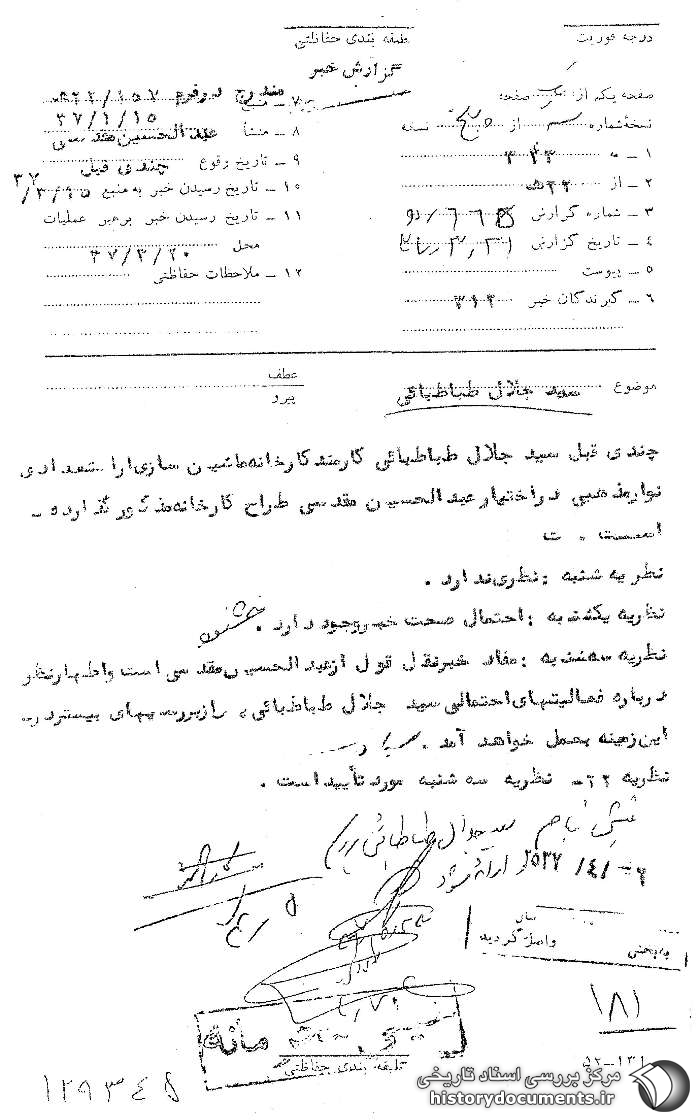 درجه فوریت
طبقه بندی حفاظتی
گزارش خبر
صفحه یک از یک صفحه
نسخه شماره از پنج نسخه
۱ـ به ۳۴۳
۲ـ از ۵۲۲
۳ـ شماره گزارش
۴ـ تاریخ گزارش
۵ـ پیوست
۶ـ گیرندگان خبر ۳۱۲
۷ـ منبع مندرج در فرم ۱۵۷/
۳۷/۱/۱۵
۸ـ منشأ عبدالحسین مقدسی
۹ـ تاریخ وقوع چندی قبل
۱۰ـ تاریخ رسیدن خبر به منبع
۱۱ـ تاریخ رسیدن خبر برهبر عملیات
محل ۳۷/۳/۲۰
۱۲ـ ملاحظات حفاظتی
موضوع سید جلال طباطبائی
عطف
پیرو
چندی قبل سید جلال طباطبائی کارمند کارخانه ماشین سازی اراک تعدادی
نوار مذهبی در اختیار عبدالحسین مقدسی طراح کارخانه مذکور گذارده ـ
است . ت
نظریه شنبه : نظری ندارد .
نظریه یکشنبه : احتمال صحت خبر وجود دارد .
نظریه سه‌شنبه : مفاد خبر نقل قول از عبدالحسین مقدسی است و اظهار نظر
درباره فعالیتهای احتمالی سید جلال طباطبائی ، را زبررسیهای بیشتر در ـ
این زمینه بعمل خواهد آمد .
نظریه ۲۲ـ نظریه سه شنبه مورد تأیید است .
سید جلال طباطبائی
ارائه شود
به‌بخش واصل گردید
۱۸۱
طبقه بندی حفاظتی
۵۲-۱۳۱
۱۲۹۳۴۵
مرکز بررسی اسناد تاریخی
historydocuments.ir